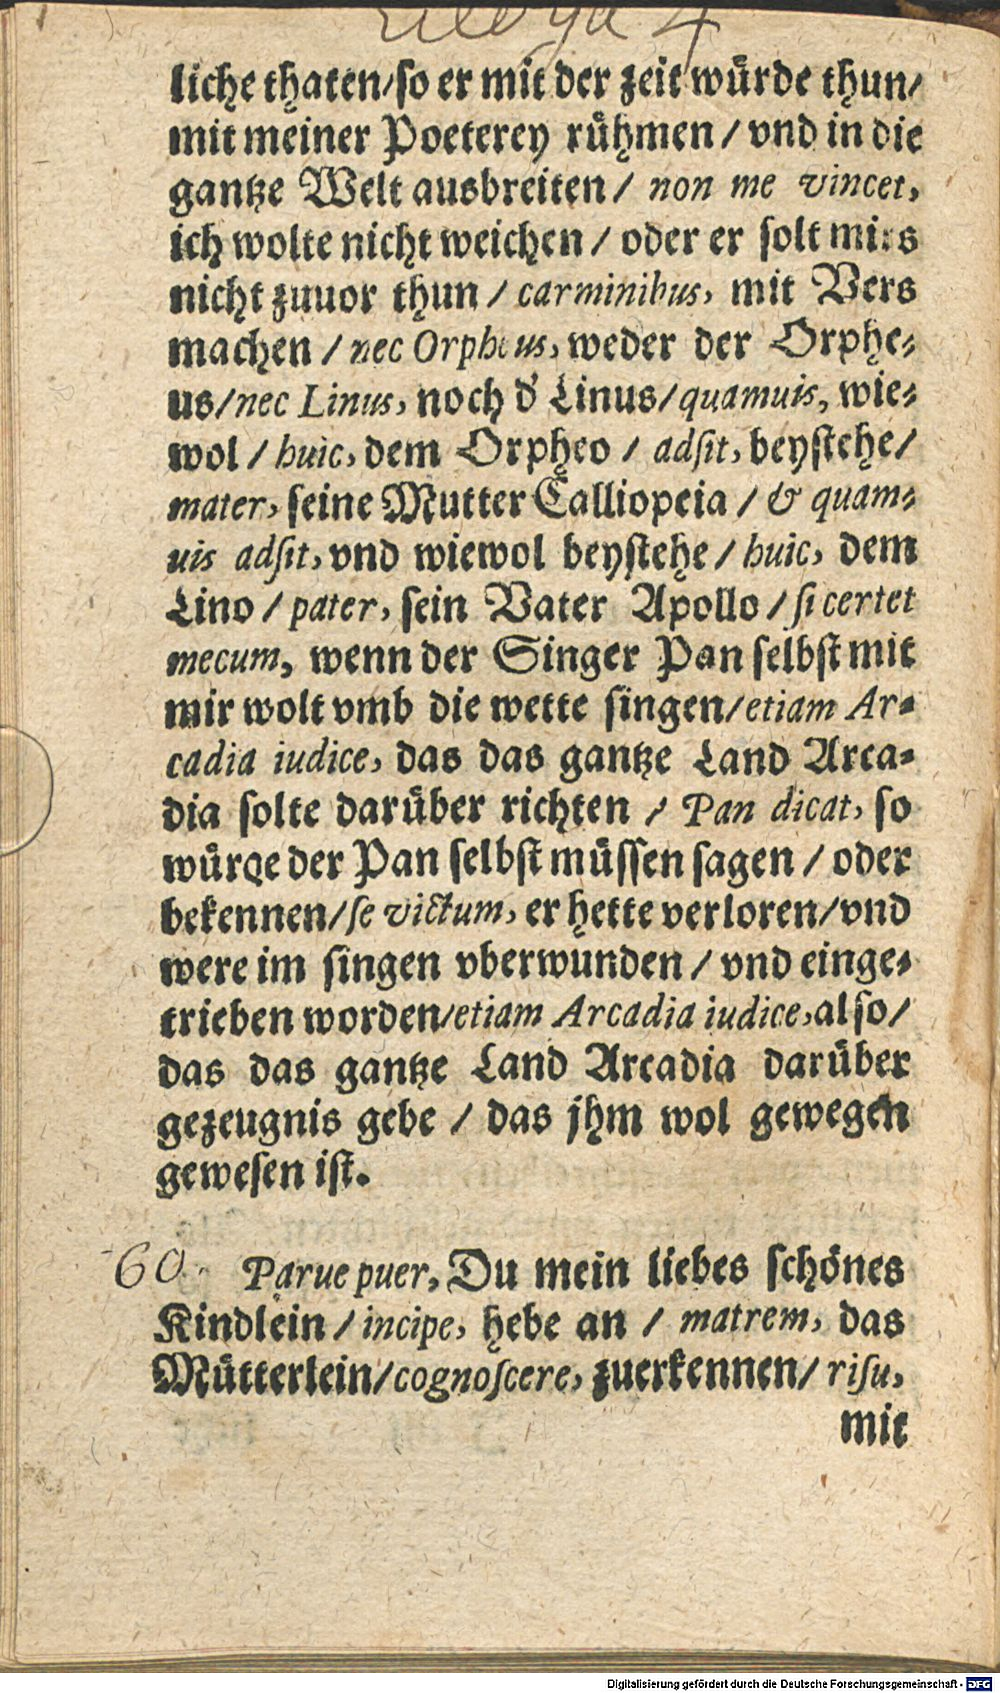 Ecloga 4
liche thaten/so er mit der zeit wuͤrde thun/
mit meiner Poeterey ruͤhmen / vnd in die
gantze Welt ausbreiten / non me vincet,
ich wolte nicht weichen / oder er solt mirs
nicht zuuor thun / carminibus, mit Vers
machen / nec Orpheus, weder der Orphe-
us/nec Linus, noch d' Linus/quamuis, wie-
wol / huic, dem Orpheo / adsit, beystehe/
mater, seine Mutter Calliopeia / & quam-
uis adsit, vnd wiewol beystehe / huic, dem
Lino / pater, sein Vater Apollo / si certet
mecum, wenn der Singer Pan selbst mit
mir wolt vmb die wette singen/etiam Ar-
cadia iudice, das das gantze Land Arca-
dia solte daruͤber richten / Pan dicat, so
wuͤrde der Pan selbst muͤssen sagen / oder
bekennen/se victum, er hette verloren/vnd
were im singen vberwunden / vnd einge-
trieben worden/etiam Arcadia iudice, also/
das das gantze Land Arcadia daruͤber
gezeugnis gebe / das jhm wol gewegen
gewesen ist.
60. Parue puer, Du mein liebes schoͤnes
Kindlein / incipe, hebe an / matrem, das
Muͤtterlein/cognoscere, zuerkennen/ risu,
mit
Digitalisierung gefördert durch die Deutsche Forschungsgemeinschaft - DFG